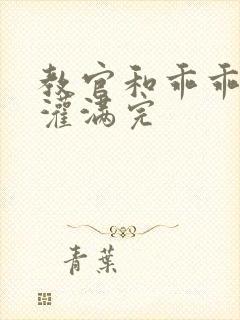 教官和乖乖
灌满完
青葉